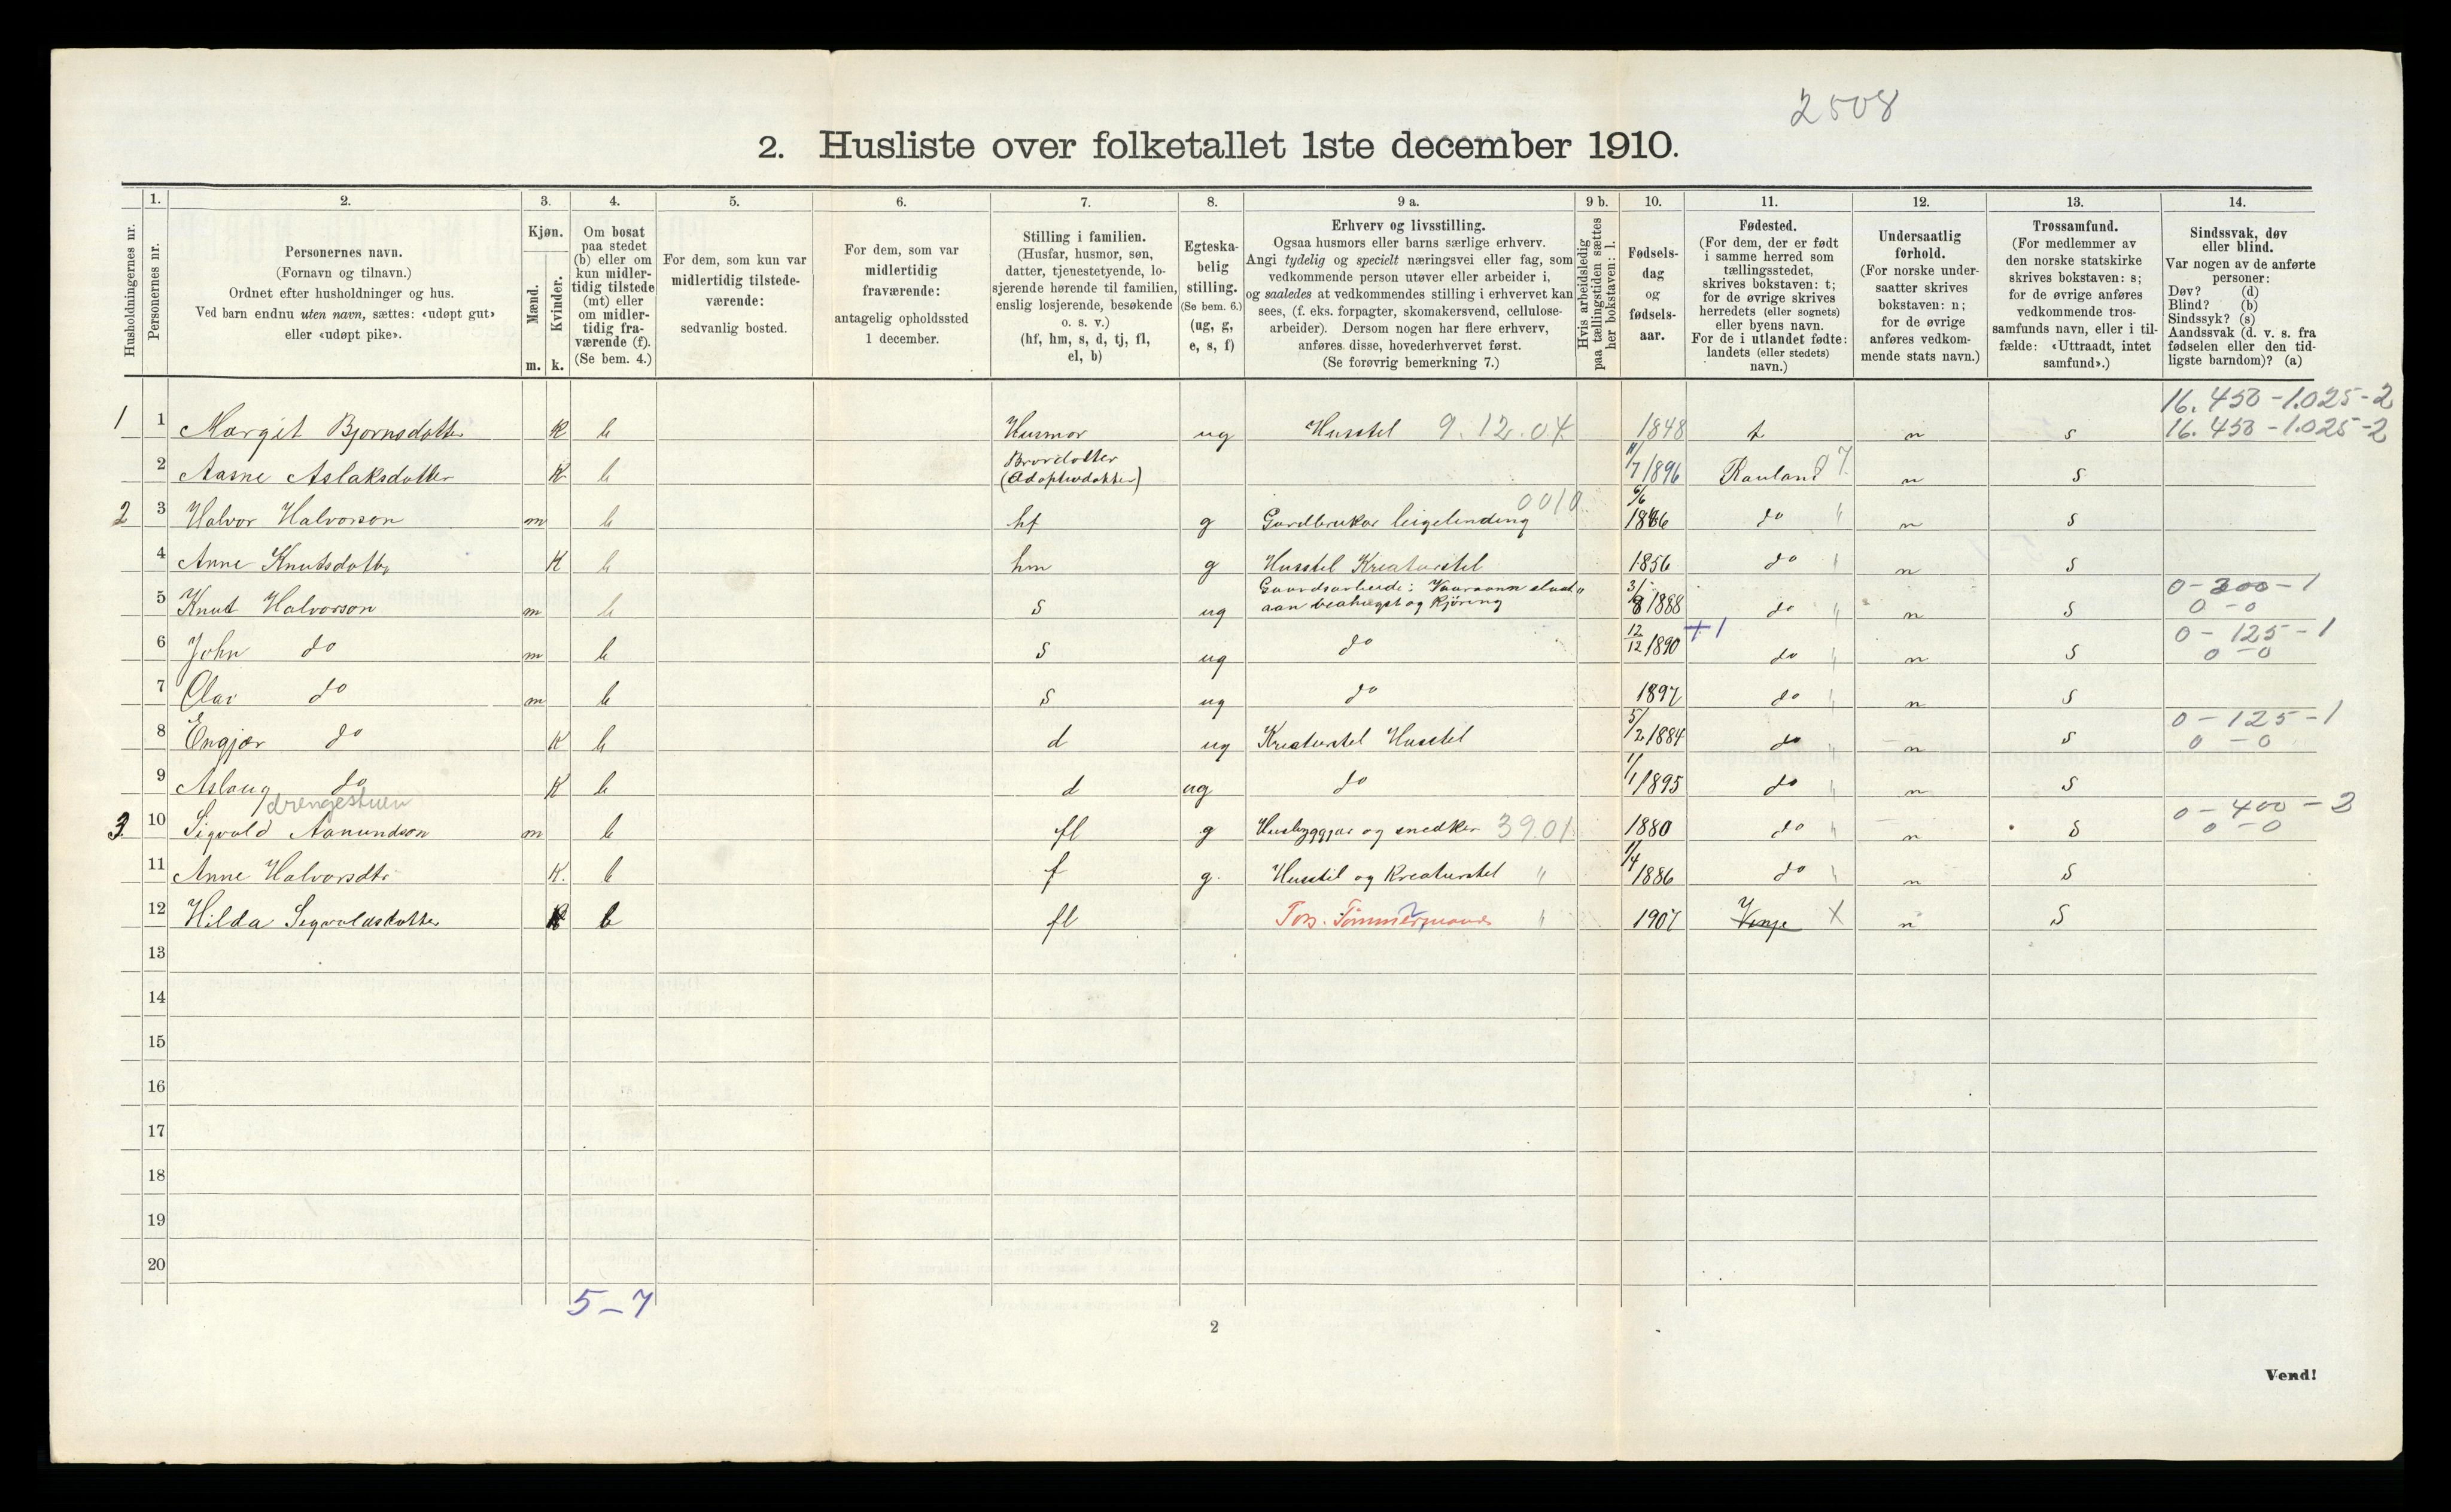 2508
2. Husliste over folketallet 1ste december 1910.
Husholdningernes nr.
1.
Personernes nr.
2.
Personernes navn.
(Fornavn og tilnavn.)
Ordnet efter husholdninger og hus.
Ved barn endnu uten navn, sættes: «udøpt gut»
eller «udøpt pike».
3.
Kjøn.
Mænd.
Kvinder.
m.
k.
4.
Om bosat
paa stedet
(b) eller om
kun midler-
tidig tilstede
(mt) eller
om midler-
tidig fra-
værende (f).
(Se bem. 4.)
5.
For dem, som kun var
midlertidig tilstede-
værende:
sedvanlig bosted.
6.
For dem, som var
midlertidig
fraværende:
antagelig opholdssted
1 december.
7.
Stilling i familien.
(Husfar, husmor, søn,
datter, tjenestetyende, lo-
sjerende hørende til familien,
enslig losjerende, besøkende
o. s. v.)
(hf, hm, s, d, tj, fl,
el, b)
8.
Egteska-
belig
stilling.
(Se bem. 6.)
(ug, g,
e, s, f)
9 a.
Erhverv og livsstilling.
Ogsaa husmors eller barns særlige erhverv.
Angi tydelig og specielt næringsvei eller fag, som
vedkommende person utøver eller arbeider i,
og saaledes at vedkommendes stilling i erhvervet kan
sees, (f. eks. forpagter, skomakersvend, cellulose-
arbeider). Dersom nogen har flere erhverv,
anføres disse, hovederhvervet først.
(Se forøvrig bemerkning 7.)
9 b.
Hvis arbeidsledig
paa tællingstiden sættes
her bokstaven: l.
10.
Fødsels-
dag
og
fødsels-
aar.
11.
Fødested.
(For dem, der er født
i samme herred som
tællingsstedet,
skrives bokstaven: t;
for de øvrige skrives
herredets (eller sognets)
eller byens navn.
For de i utlandet fødte:
landets (eller stedets)
navn.)
12.
Undersaatlig
forhold.
(For norske under-
saatter skrives
bokstaven: n;
for de øvrige
anføres vedkom-
mende stats navn.)
13.
Trossamfund.
(For medlemmer av
den norske statskirke
skrives bokstaven: s;
for de øvrige anføres
vedkommende tros-
samfunds navn, eller i til-
fælde: «Uttraadt, intet
samfund».)
14.
Sindssvak, døv
eller blind.
Var nogen av de anførte
personer:
Døv? (d)
Blind? (b)
Sindssyk? (s)
Aandssvak (d. v. s. fra
fødselen eller den tid-
ligste barndom)? (a)
16. 450 - 1.025 - 2
1 1 Margit Bjørnsdotter K b Husmor ug Husstel 9.12.04 1848 t n s 16. 450 - 1.025 - 2
2 Aasne Aslaksdotter K b Brordotter (Adoptivdotter) 11/7 1896 Rauland n s
2 3 Halvor Halvorson m b hf g Gardbrukar leigelending 0010 6/6 n s
4 Anne Knutsdottr K b hm g Husstel Kreaturstel 1856 do n s
5 Knut Halvorson m b s ug Gaardsarbeide: Vaaraann slaat aan og kjøring 1888 do n s 0-300-1
0-0
6 John do m b s ug do 12/12 1890 +1 do n s 0-125-1
0-0
7 Olav do m b s ug do 1897 do n s
8 Engjær do K b d ug Kreaturstel Husstel 5/2 1884 do n s 0-125-1
0-0
9 Aslaug do K b d ug do 1/1 1895 do n s
drengestuen
3 10 Sigvald Aanundson m b fl g Husbyggjar og snedker 39.01 1880 do n s 0-400-3
0-0
11 Anne Halvorsdtr K. b f g. Husstel og Kreaturstel " 1/4 1886 do n s
12 Hilda Sigvaldsdotter K b fl Tømmermand " 1907 Vinje X n s
13
14
15
16
17
18
19
20
5-7
2
Vend!